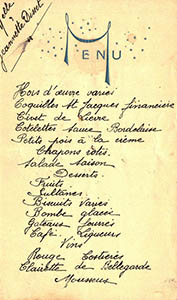 Melle
Jeannette Disert
MENU
Hors d'œuvre variés
Coquilles St Jacques financière
Civet de Lièvre
Cotelettes sauce Bordelaise
Petits pois à la crème
Chapons rotis
Salade saison
Desserts.
Fruits
Sultanes
Biscuits variés
Bombe glacée
Gateaux fourrés
Café. Liqueurs
Vins
Rouge Costières
Clairette de Bellegarde
Mousseux